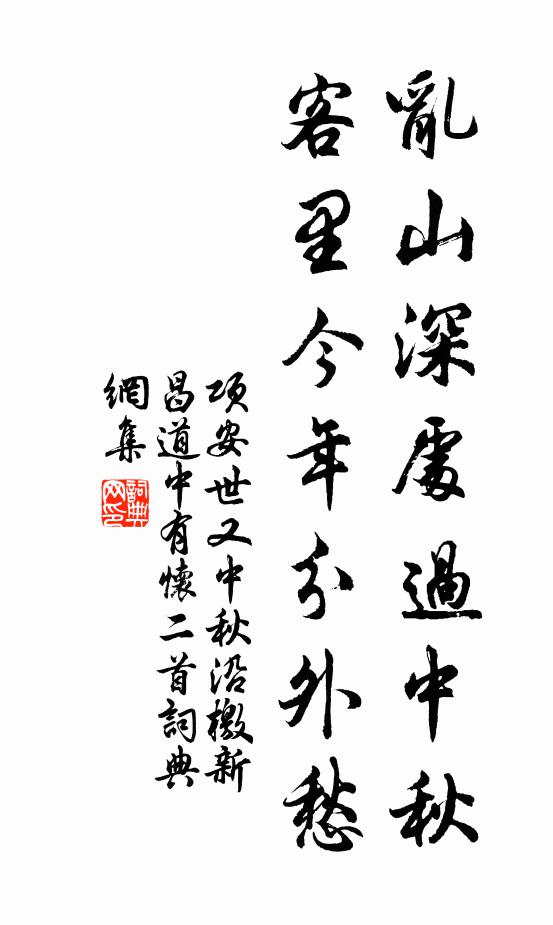 亂山深處過中秋
客里今年分外愁
項安世又中秋沿檄新
昌道中有懷二首詞典
網集
詞典
网印